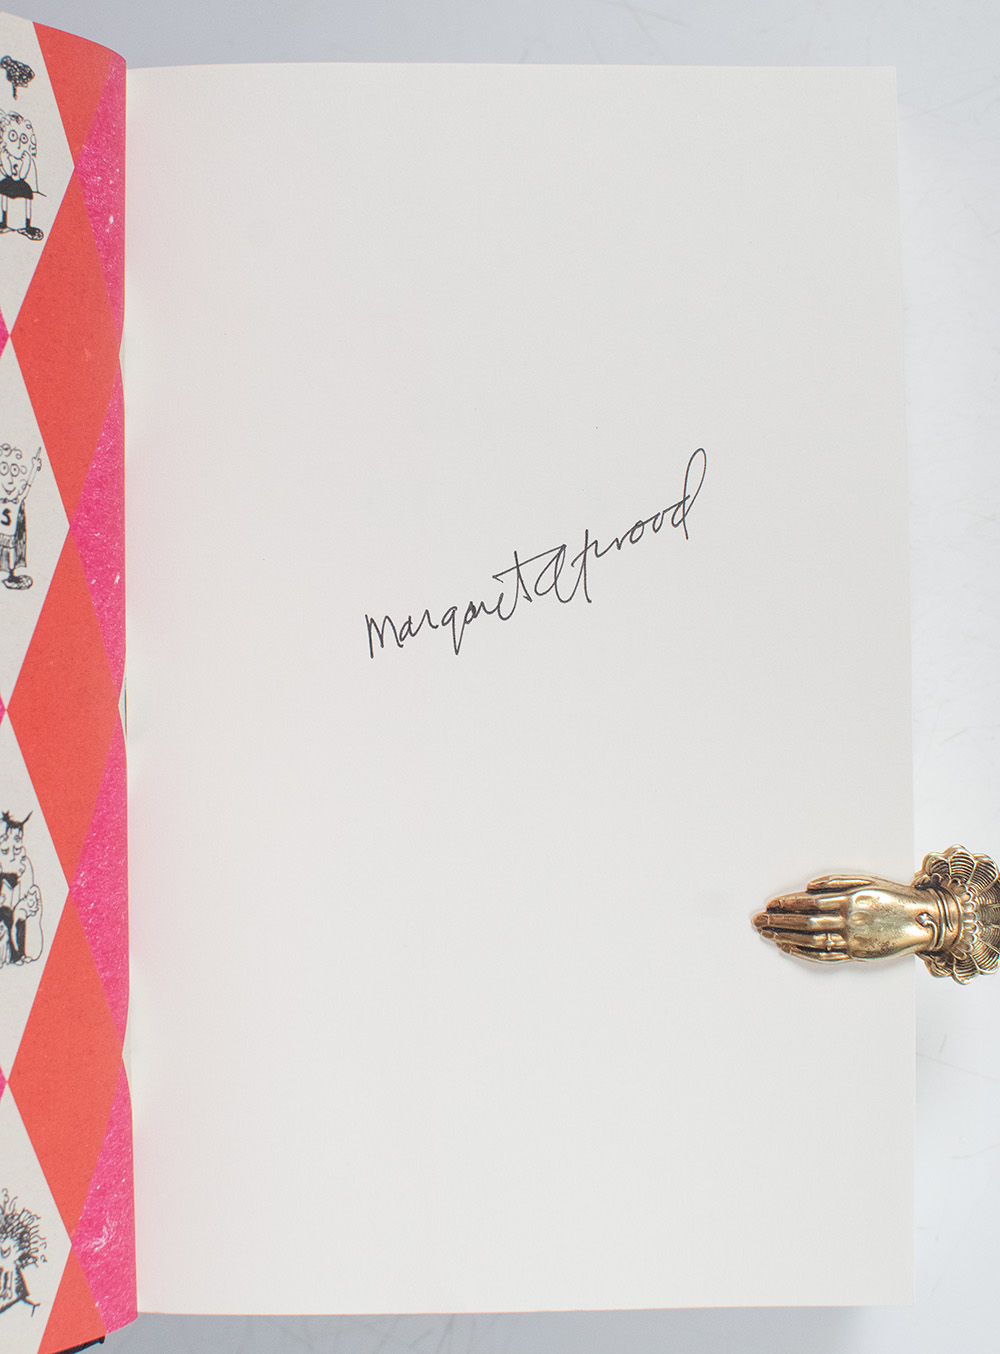 Margaret Atwood
S
S